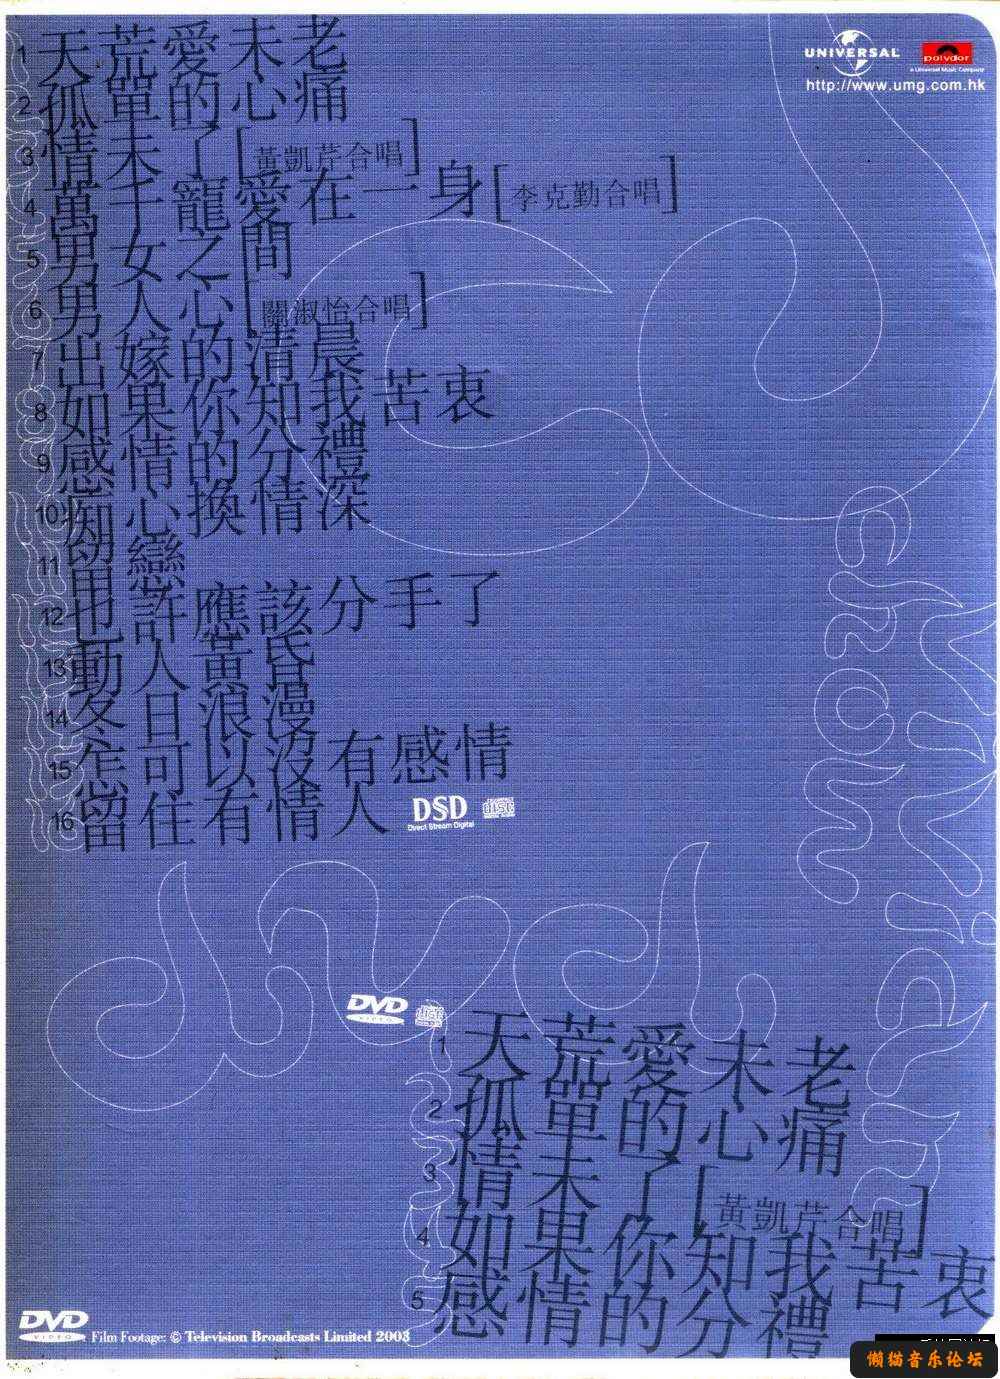 UNIVERSAL
polydor
a Universal Music Company
http://www.umg.com.hk
1 天荒愛未老
2 孤單的心痛
3 情未了 [黃凱芹合唱]
4 萬千寵愛在一身 [李克勤合唱]
5 男女之間
6 男人心 [關淑怡合唱]
7 出嫁的清晨
8 如果你知我苦衷
9 感情的分禮
10 痴心換情深
11 幼戀
12 也許應該分手了
13 動人黃昏
14 冬日浪漫
15 怎可以沒有感情
16 留住有情人
DSD
Direct Stream Digital
disc
DIGITAL AUDIO
DVD
VIDEO
disc
1 天荒愛未老
2 孤單的心痛
3 情未了 [黃凱芹合唱]
4 如果你知我苦衷
5 感情的分禮
DVD
VIDEO
Film Footage: © Television Broadcasts Limited 2003
懒猫音乐论坛